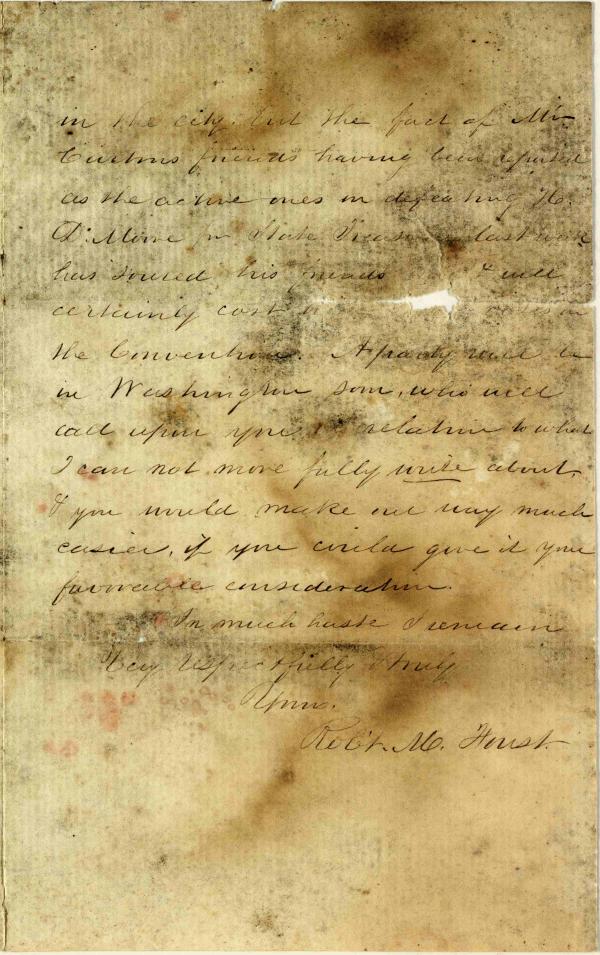 in the city. But the fact of Mr
Curtins friends having been reported
as the active ones in defeating H.
D. Moore for State Treasurer last week
has soured his friends & will
certainly cost
the Convention. A party will be
in Washington soon, who will
call upon you in relation to what
I can not more fully write about,
& you would make our way much
easier, if you could give it your
favorable consideration.
In much haste I remain
Very Respectfully & truly
Yours.
Robt. M. Foust